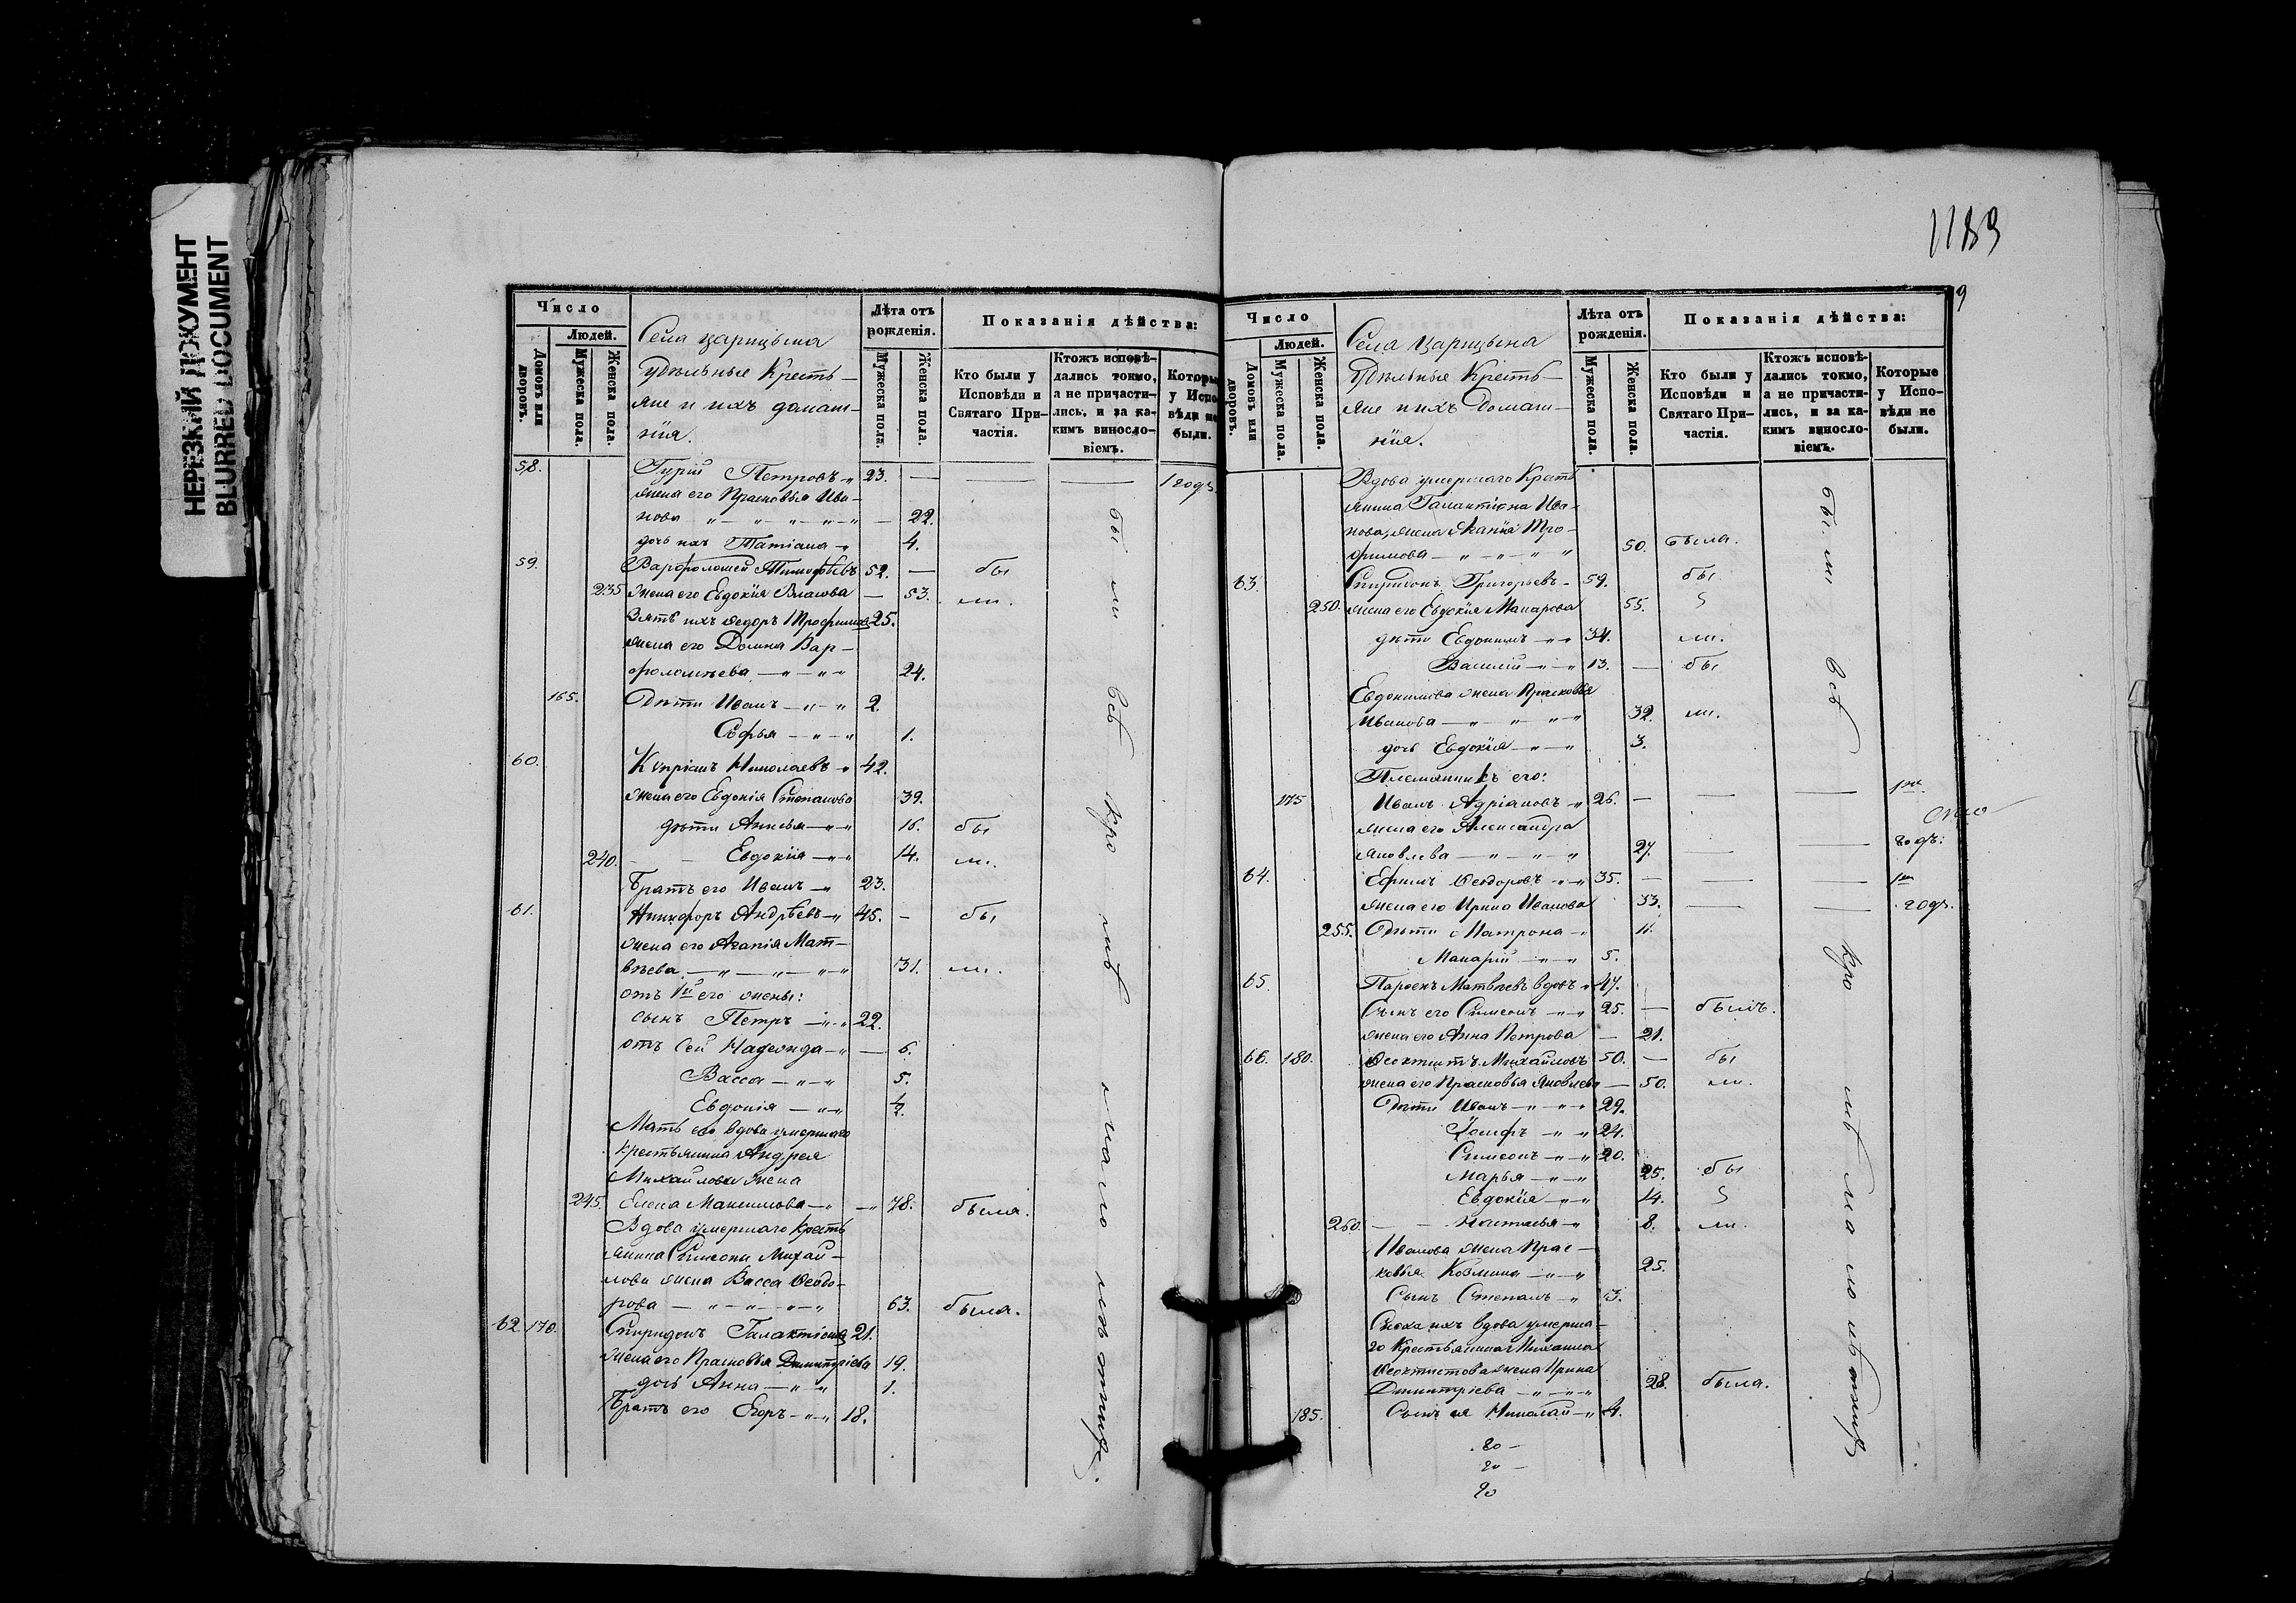 НЕРЕЗКИЙ ДОКУМЕНТ
BLURRED DOCUMENT
Число
Людей.
Домовъ или дворовъ.
Мужеска пола.
Женска пола.
Села Царицына
Удѣльные Кресть-
яне и ихъ домаш-
нія.
Лѣта отъ рожденія.
Мужеска пола.
Женска пола.
Показанія дѣйства:
Кто были у Исповѣди и Святаго При-частія.
Ктожъ исповѣ-дались токмо, а не причасти-лись, и за ка-кимъ винослo-віемъ.
Которые у Испо-вѣди не были.
58. Гурій Петровъ 23. — — — 1 годъ.
жена его Прасковья Ива-
нова — 22.
дочь ихъ Татіана 4.
59. Варфоломей Тимофѣевъ 52. — бы
235 жена его Евдокія Власова — 53. ли.
Зять ихъ Ѳедоръ Трофимовъ 25.
жена его Домна Вар-
фоломѣева 24.
165. Дѣти Иванъ 2.
Софья 1.
60. Кипріанъ Николаевъ 42.
жена его Евдокія Степанова 39.
дѣти Анисья 16. бы
240. Евдокія 14. ли.
Братъ его Иванъ 23.
61. Никифоръ Андрѣевъ 45. — бы
жена его Агапія Мат-
вѣева 31. ли.
отъ 1й его жены:
сынъ Петръ 22.
отъ сей Надежда — 6.
Васса 5.
Евдокія ½.
Мать его вдова умершаго
крестьянина Андрея
Михайлова жена
245. Елена Максимова 78. была.
Вдова умершаго Кресть
янина Симеона Михай-
лова жена Васса Ѳеодо-
рова 63. была.
62. 170. Спиридонъ Галактіонъ 21.
жена его Прасковья Димитріева 19.
дочь Анна 1.
Братъ его Егоръ 18.
1189
9
Число
Людей.
Домовъ или дворовъ.
Мужеска пола.
Женска пола.
Села Царицына
Удѣльные Кресть-
яне и ихъ Домаш-
нія.
Лѣта отъ рожденія.
Мужеска пола.
Женска пола.
Показанія дѣйства:
Кто были у Исповѣди и Святаго При-частія.
Ктожъ исповѣ-дались токмо, а не причасти-лись, и за ка-кимъ винослo-віемъ.
Которые у Испо-вѣди не были.
Вдова умершаго Кресть
янина Галактіона Ива-
нова, жена Агапія Тро-
фимова 50. была.
63. Спиридонъ Григорьевъ 59. бы
250. жена его Евдокія Макарова 55.
дѣти Евдокимъ 34. ли.
Василій 13. — бы
Евдокимова жена Прасковья
Иванова 32. ли.
дочь Евдокія 3.
Племянникъ его:
175 Иванъ Адріановъ 26. — — —
жена его Александра
Яковлева 27. — — годъ:
64. Ефимъ Ѳеодоровъ 35. — — —
жена его Ирина Иванова 33. — — годъ.
255. Дѣти Матрона 11.
Макарій 5.
65. Парѳенъ Матвѣевъ вдовъ 47.
Сынъ его Симеонъ 25. — былъ.
жена его Анна Петрова — 21.
66. 180. Ѳеоктистъ Михайловъ 50. — бы
жена его Прасковья Яковлева — 50. ли.
Дѣти Иванъ 29.
Іосифъ 24.
Симеонъ 20.
Марья 25. бы
Евдокія 14.
260. Наталья 8. ли.
Иванова жена Прас-
ковья Козмина 25.
Сынъ Степанъ 3.
Сноха ихъ вдова умерша-
го Крестьянина Михаила
Ѳеоктистова жена Ирина
Димитріева 28. была.
185. Сынъ ея Николай 4.